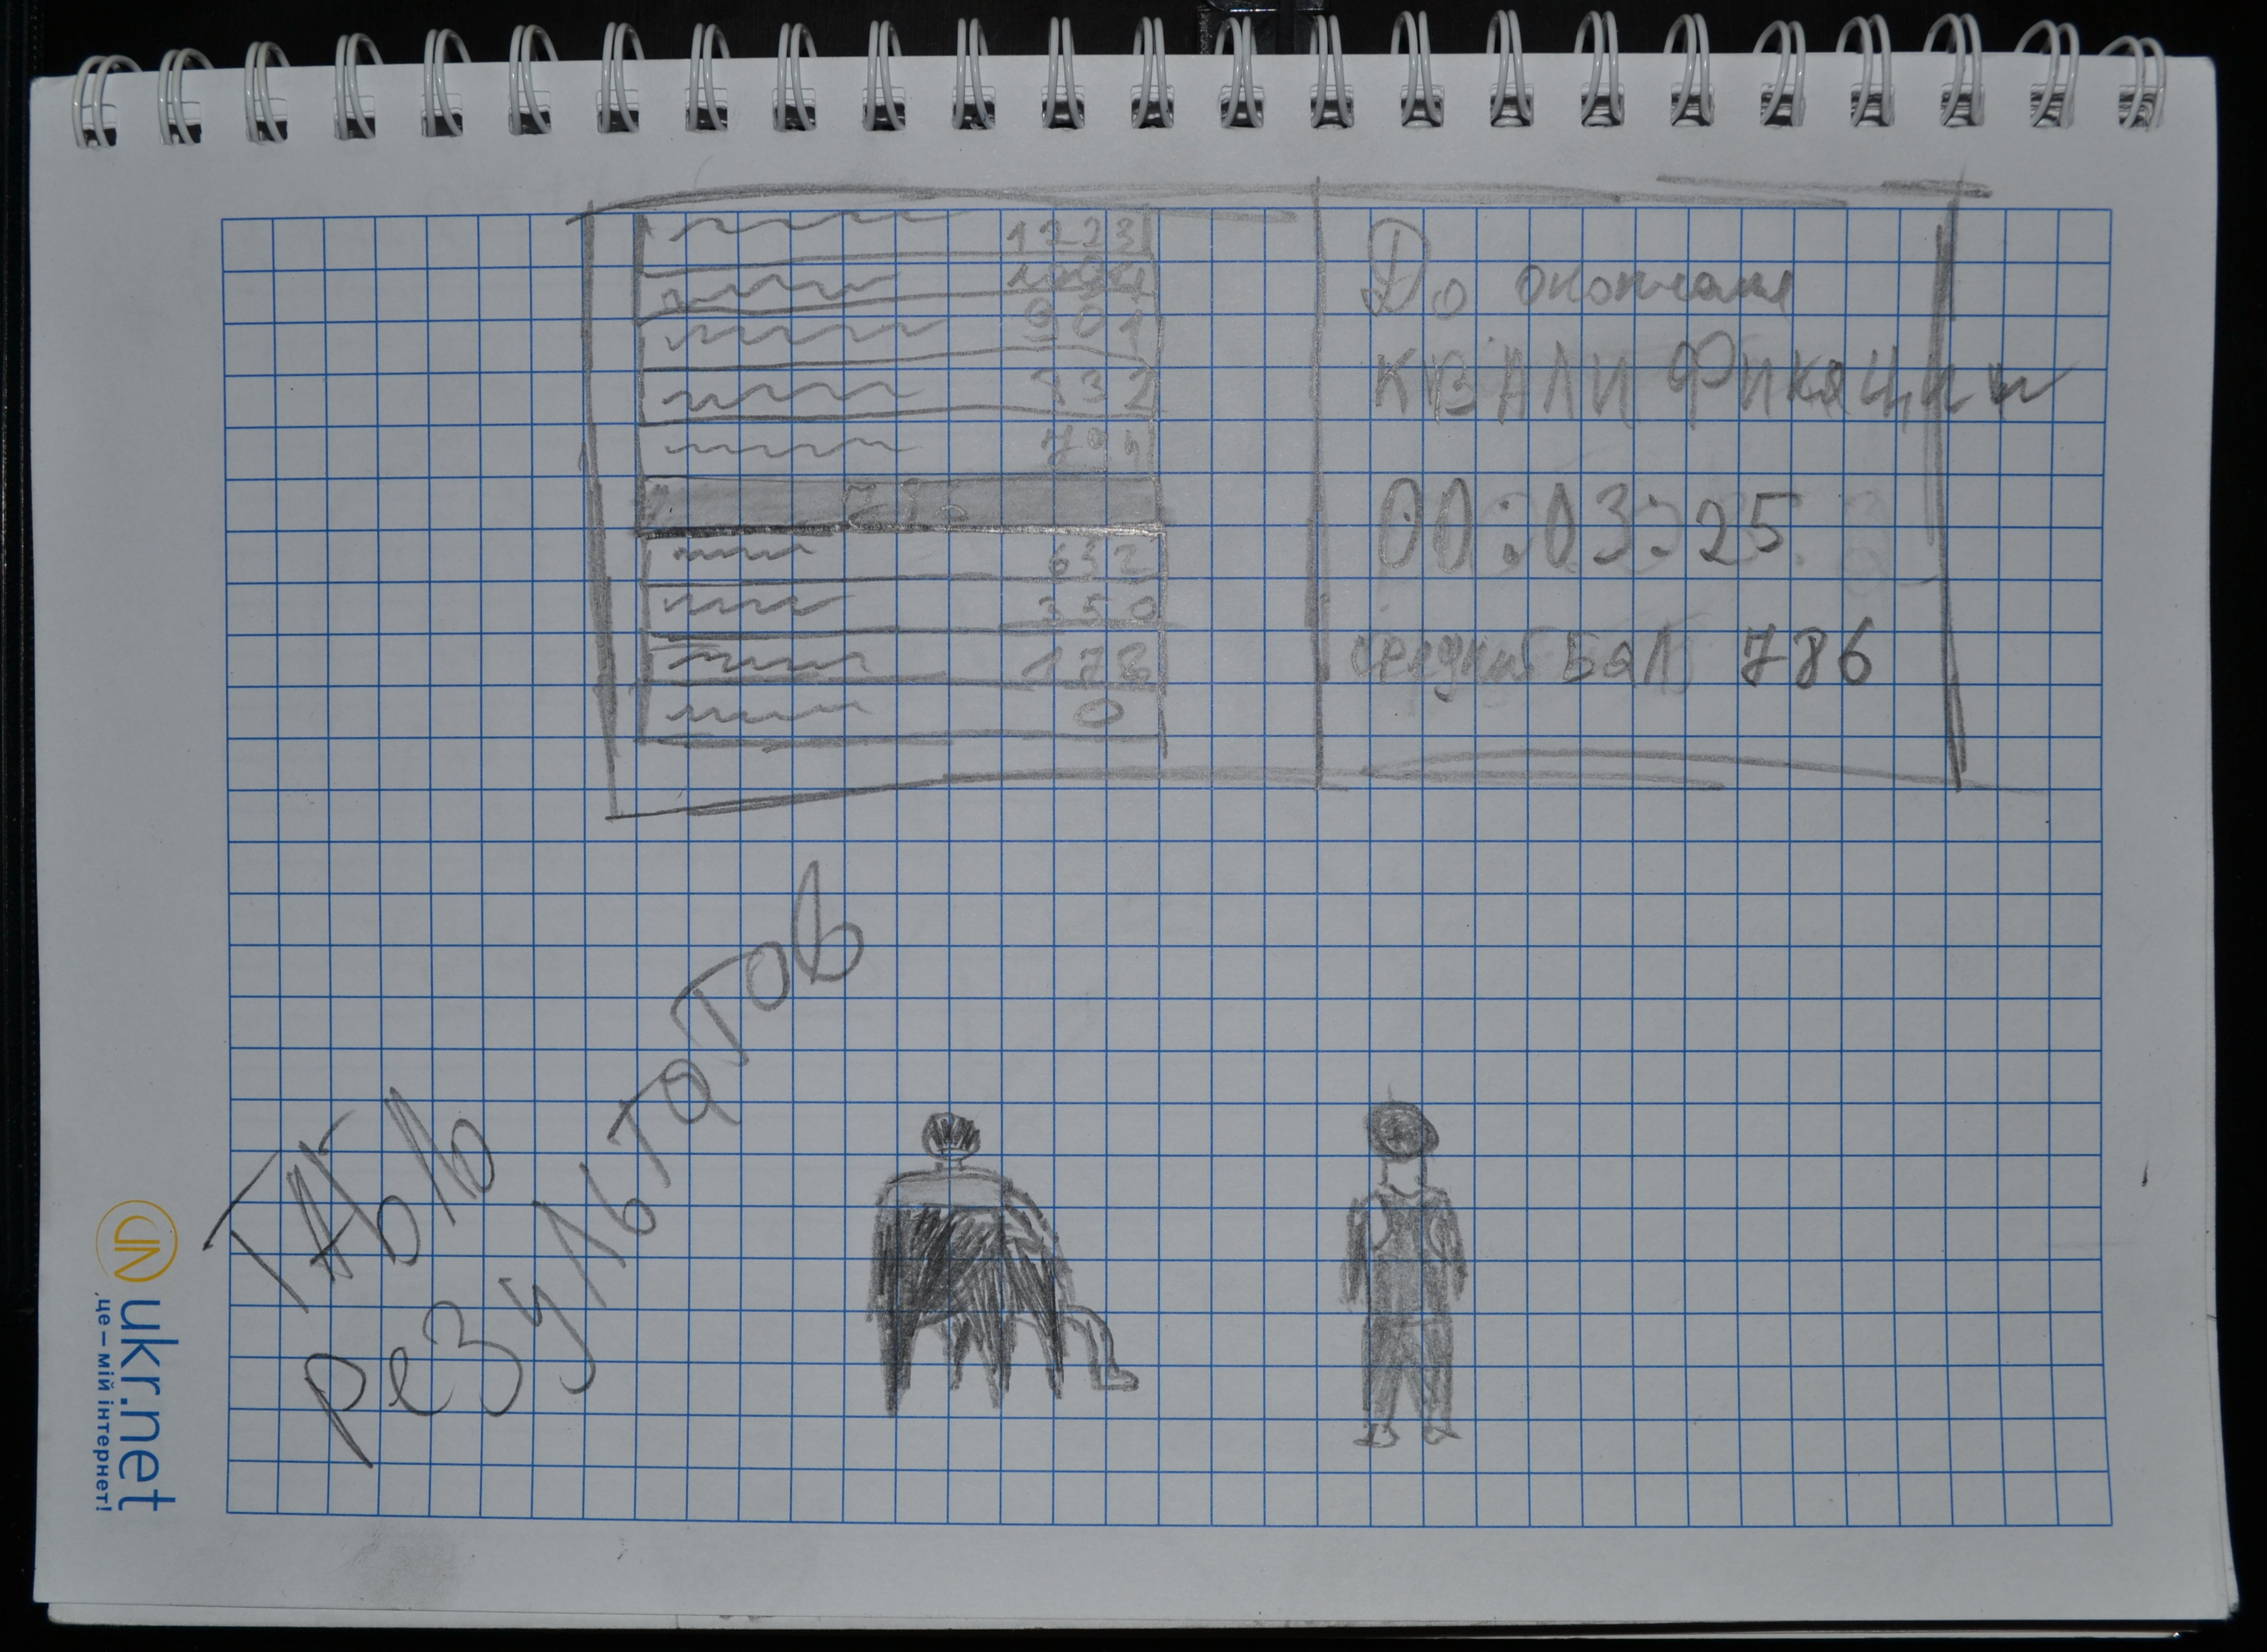 1223
901
632
350
178
0
До окончания
КВАЛИФИКАЦИИ
00:03:25
средний Бал 786
ТАбло
результатов
ukr.net
це – мій інтернет!